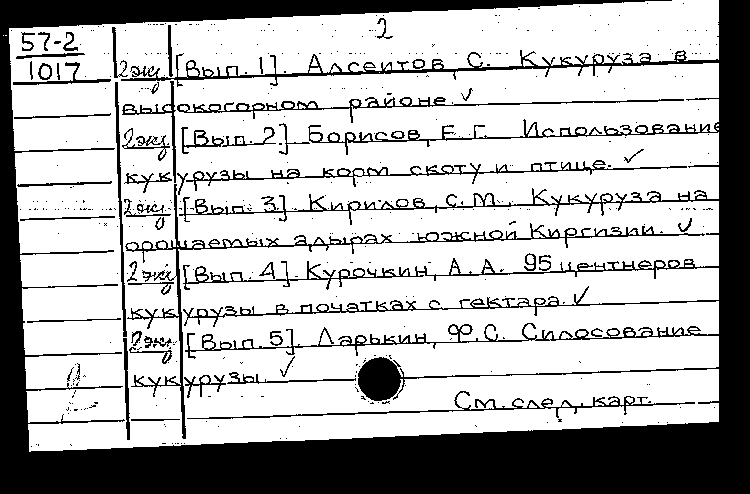 2
57-2
1017
2 экз [Вып. 1]. Алсеитов, С. Кукуруза в
высокогорном районе. ✓
2 экз [Вып. 2] Борисов, Е. Г. Использование
кукурузы на корм скоту и птице. ✓
2 экз [Вып. 3]. Кирилов, С. М. Кукуруза на
орошаемых адырах южной Киргизии. ✓
2 экз [Вып. 4]. Курочкин, А. А. 95 центнеров
кукурузы в початках с гектара. ✓
2 экз [Вып. 5]. Ларькин, Ф. С. Силосование
кукурузы. ✓
2
См. след. карт.